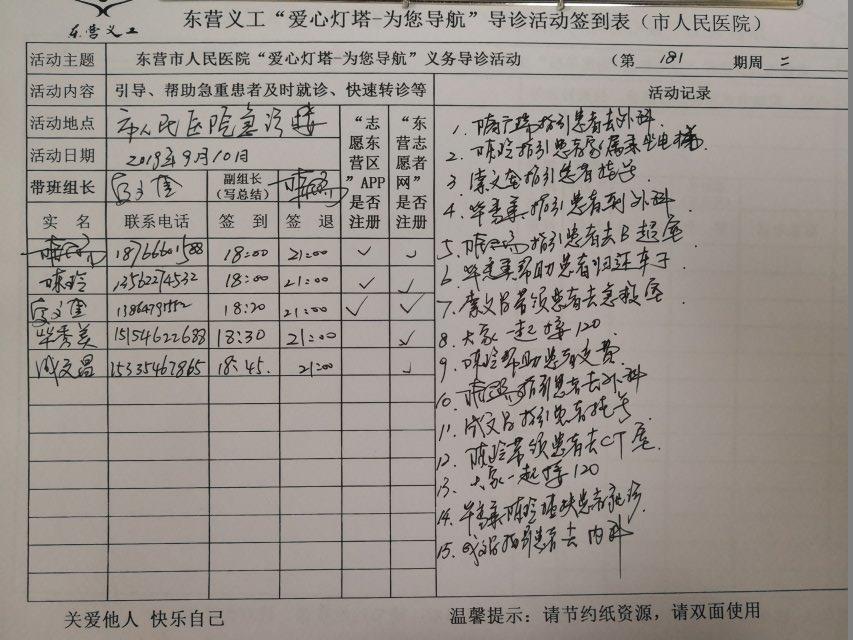 东营义工
东营义工“爱心灯塔-为您导航”导诊活动签到表（市人民医院）
活动主题 东营市人民医院“爱心灯塔-为您导航”义务导诊活动 （第 181 期周 二
活动内容 引导、帮助急重患者及时就诊、快速转诊等
活动地点 市人民医院急诊楼
活动日期 2019年9月10日
带班组长 副组长（写总结）
“志愿东营区”APP是否注册
“东营志愿者网”是否注册
实 名 联系电话 签 到 签 退
18766601588 18:00 21:00 ✓ ✓
陈玲 13562274532 18:00 21:00 ✓ ✓
18:20 21:00 ✓ ✓
毕秀美 15154622688 18:30 21:00 ✓
成文昌 15335467865 18:45. 21:00 ✓
活动记录
1. 指引患者去外科.
2. 陈玲指引患者家属乘坐电梯
3. 指引患者挂号
4. 毕秀美指引患者到外科
5. 指引患者去B超室
6. 毕秀美帮助患者归还车子
7. 带领患者去急救室
8. 大家一起接120.
9. 陈玲帮助患者交费.
10. 指引患者去外科
11. 成文昌指引患者挂号
12. 陈玲带领患者去CT室.
13. 大家一起接120
14. 毕秀美陈玲 患者就诊.
15. 成文昌指引患者去内科
关爱他人 快乐自己
温馨提示：请节约纸资源，请双面使用